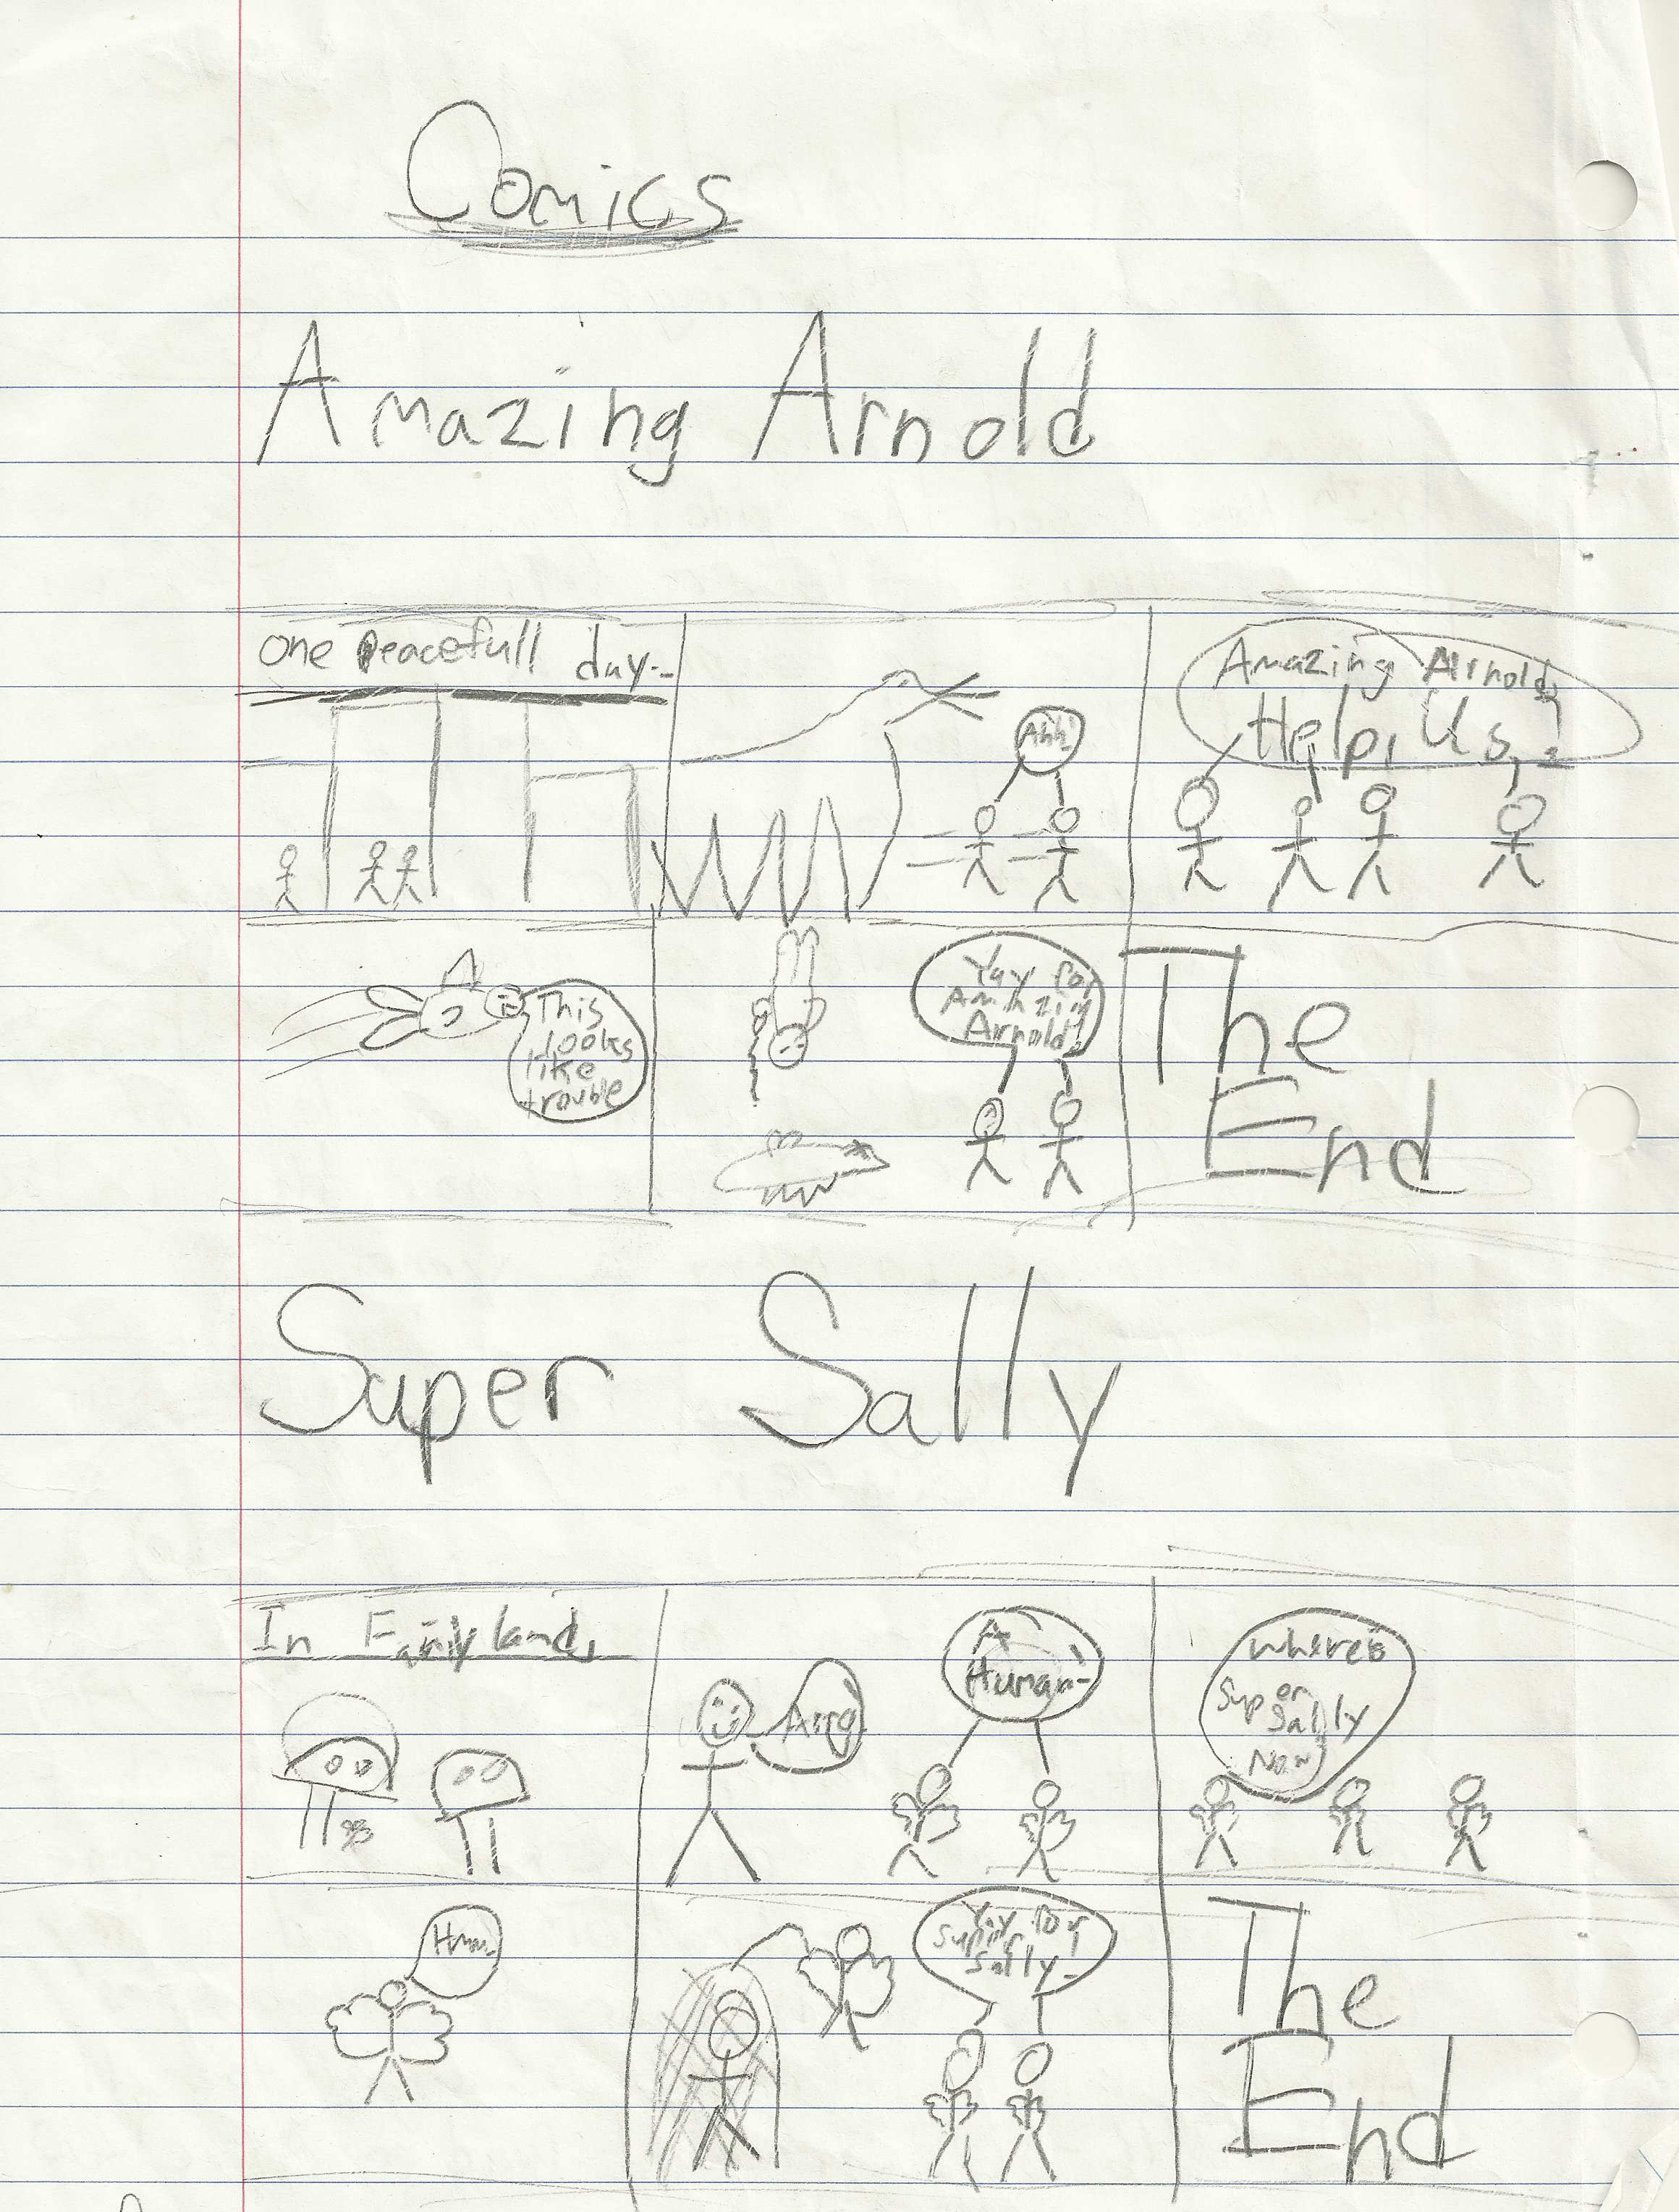 Comics
Amazing Arnold
One Peacefull day...
Ahh!
Amazing Arnold,
Help, Us,
This
looks
like
trouble
Yay for
Amazing
Arnold!
The
End
Super Sally
In Fairyland,
Arrg
A
Human
where's
Super
Sally
Now
Hmm
Yay for
Super
Sally
The
End